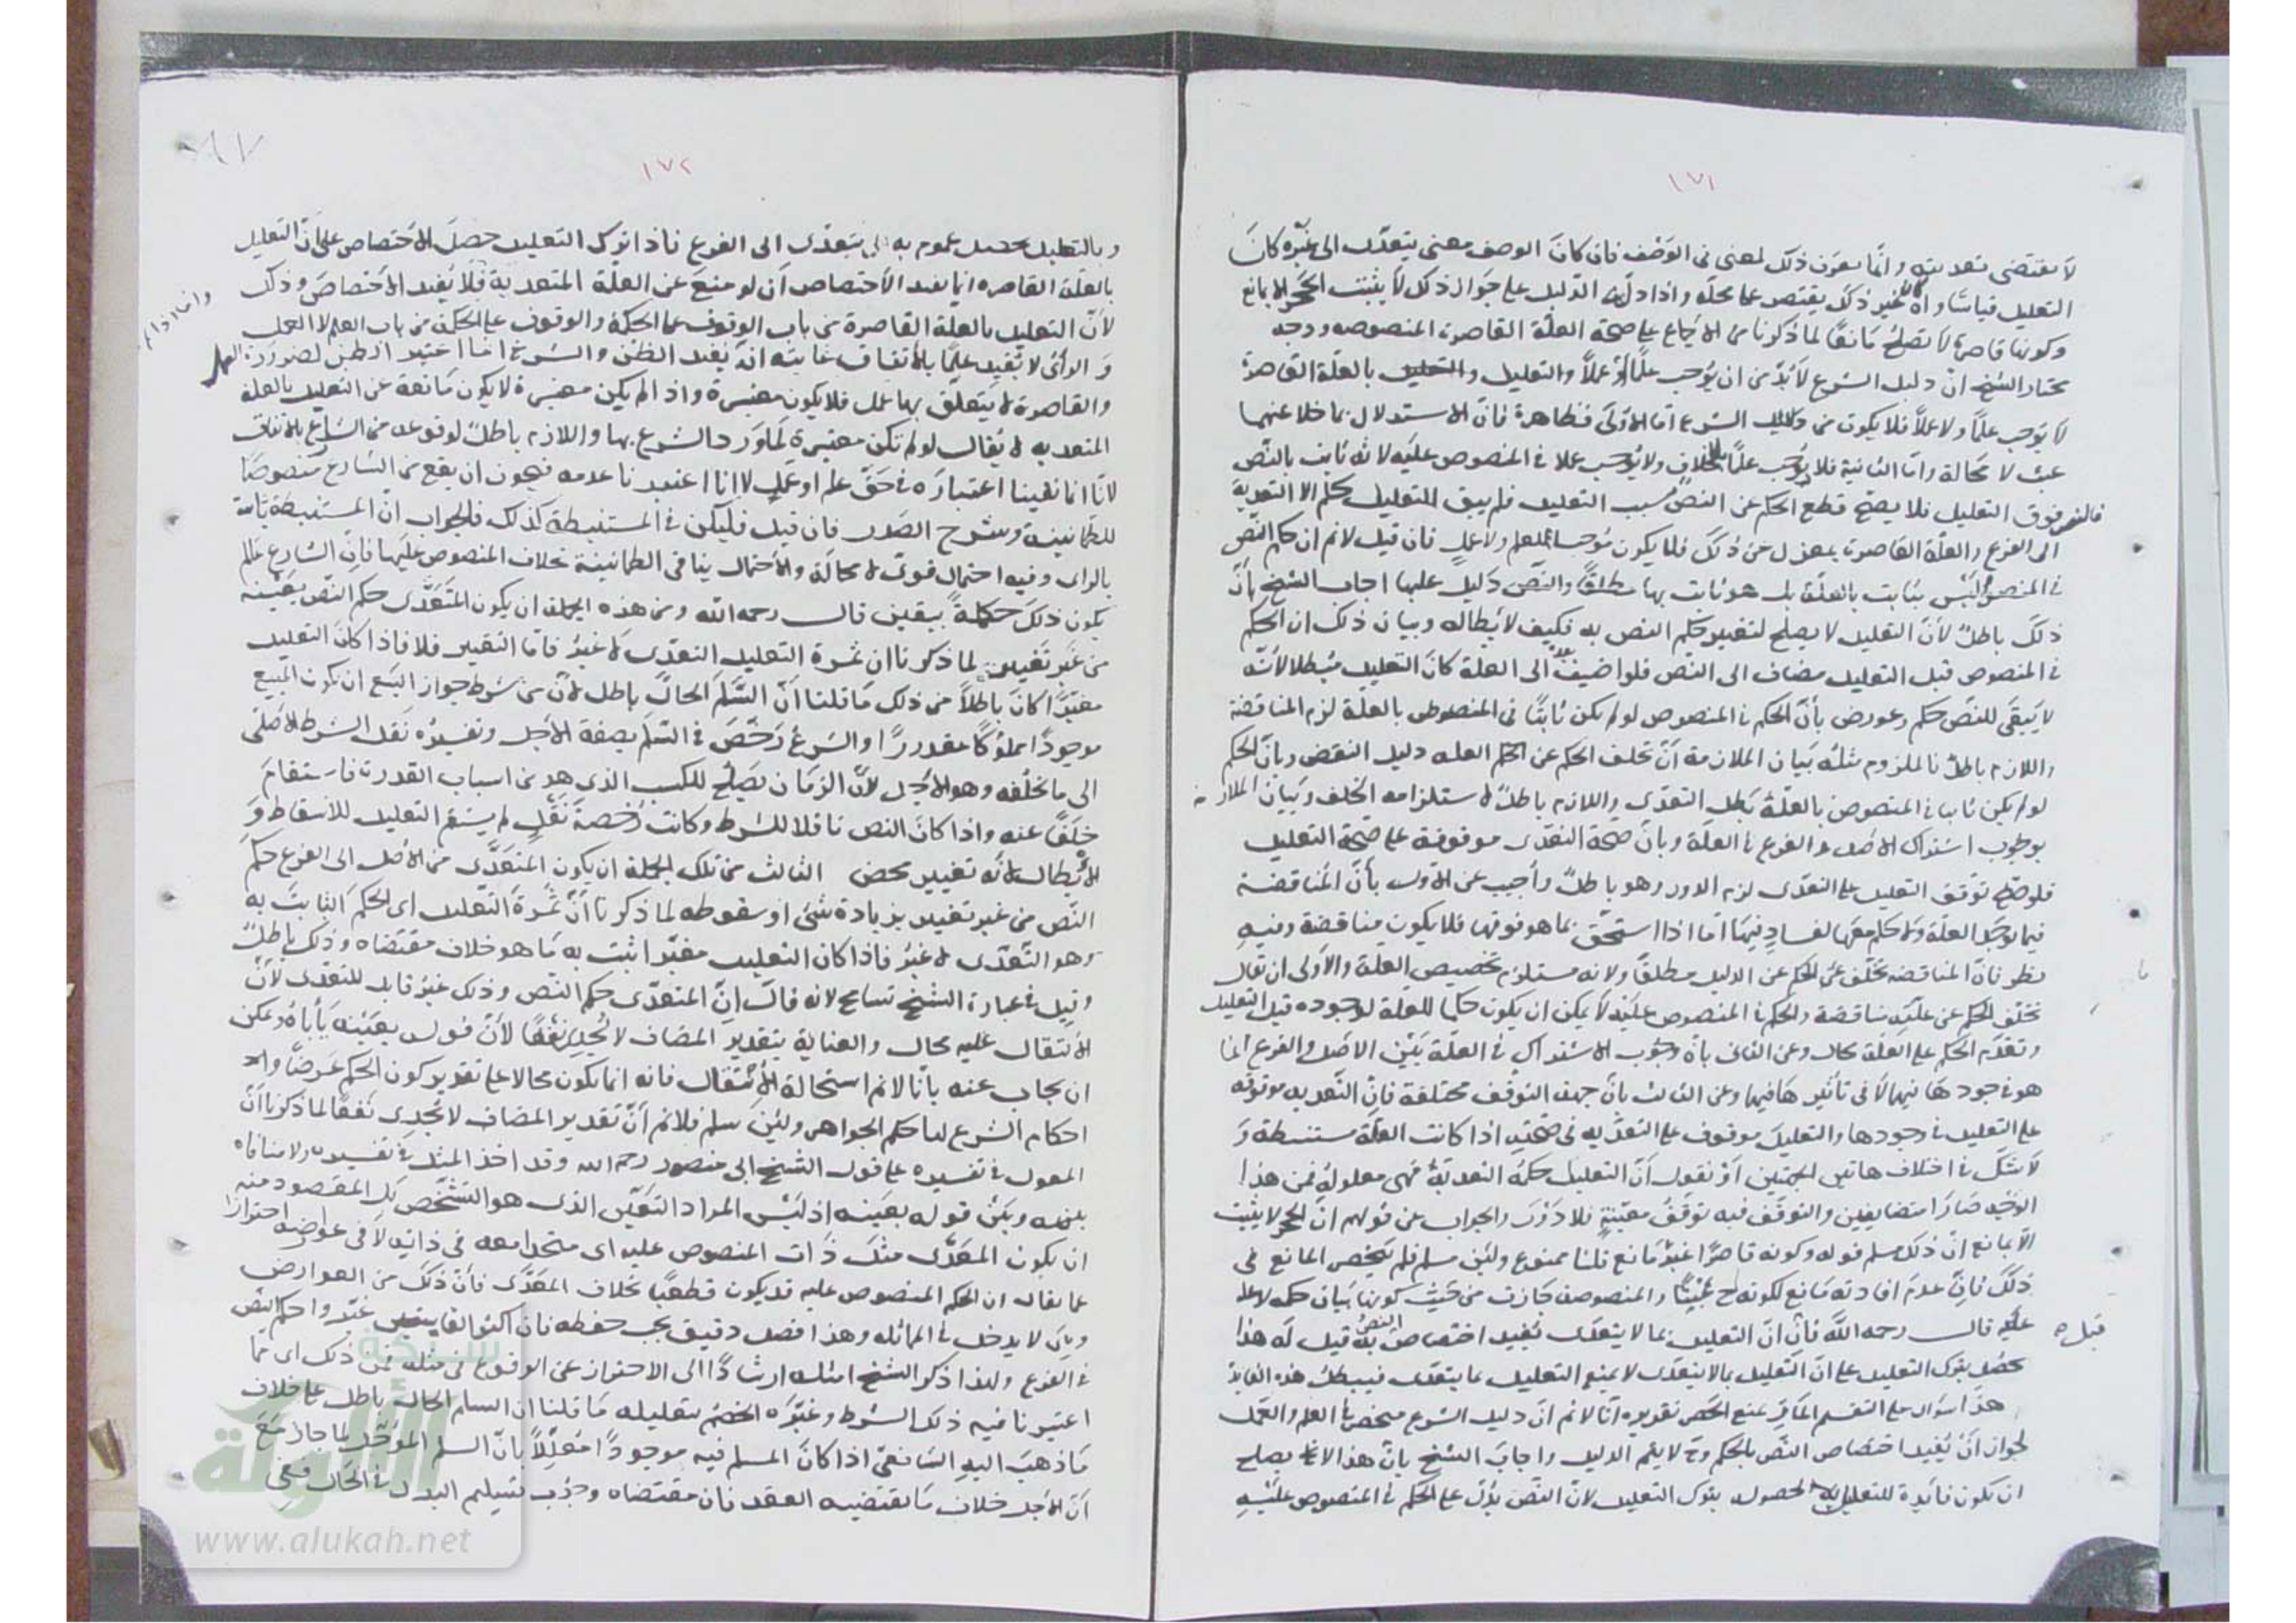 ١٧١
لا يقتضى تعديته وانما يعرف ذلك لمعنى فى الوصف فان كان الوصف معنى يتعدى الى غيره كان
التعليل قياسا وان كان غير ذلك يقتصر على محله واذا دل الدليل على جواز ذلك لا يثبت الحجر الا بمانع
وكونها قاصرة لا تصلح مانعا لما ذكرنا من الاجماع على صحة العلة القاصرة المنصوصة ووجه
مختار الشيخ ان دليل الشرع لا بد من ان يوجب علما او عملا والتعليل بالعلة القاصرة
لا يوجب علما ولا عملا فلا يكون من دلايل الشرع اما الاولى فظاهرة فان الاستدلال بما خلا عنهما
عبث لا محالة واما الثانية فلا يوجب علما بلا خلاف ولا يوجب عملا فى المنصوص عليه لانه ثابت بالنص
فالنص فوق التعليل فلا يصح قطع الحكم عن النص بسبب التعليل فلم يبق للتعليل حكم الا التعدية
الى الفرع والعلة القاصرة بمعزل عن ذلك فلا يكون موجبا للعلم ولا عمل فان قيل لانم ان حكم النص
فى المنصوص ليس بثابت بالعلة بل هو ثابت بها مطلقا والنص دليل عليها اجاب الشيخ بان
ذلك باطل لان التعليل لا يصلح لتغيير حكم النص به فكيف لابطاله وبيان ذلك ان الحكم
فى المنصوص قبل التعليل مضاف الى النص فلو اضيف بعده الى العلة كان التعليل مبطلا لانه
لا يبقى للنص حكم وعورض بان الحكم فى المنصوص لو لم يكن ثابتا فى المنصوص بالعلة لزم المناقضة
واللازم باطل فالملزوم مثله بيان الملازمة ان تخلف الحكم عن العلة دليل النقض وبان الحكم
لو لم يكن ثابتا فى المنصوص بالعلة بطل التعدى واللازم باطل لاستلزامه الخلف وبيان الملازمة
بوجوب اشتراك الاصل والفرع فى العلة وبان صحة التعدى موقوفة على صحة التعليل
فلو صح توقف التعليل على التعدى لزم الدور وهو باطل وأجيب عن الاول بأن المناقضة
فيما يوجد العلة ولا حكم معها لفساد فيها اما اذا استحق بما هو فوقها فلا يكون مناقضة وفيه
نظر فان المناقضة تخلف الحكم عن الدليل مطلقا ولانه مستلزم تخصيص العلة والأولى ان تقال
تخلف الحكم عن علته مناقضة والحكم فى المنصوص عليه لا يمكن ان يكون حكما للعلة لوجوده قبل التعليل
وتقدم الحكم على العلة محال وعن الثانى بان وجوب الاشتراك فى العلة بين الاصل والفرع انما
هو فى وجودها فيهما لا فى تأثيرها فيهما وعن الثالث بان جهة التوقف مختلفة فان التعدية موقوفة
على التعليل فى وجودها والتعليل موقوف على التعدية فى صحته اذا كانت العلة مستنبطة و
لا شك فى اختلاف هاتين الجهتين أو نقول ان التعليل حكمه التعدية فهى معلوله فمن هذا
الوجه صارا متضايفين والتوقف فيه توقف معية فلا دور والجواب عن قولهم ان الحجر لا يثبت
الا بمانع ان ذلك مسلم قوله وكونه قاصرا غير مانع قلنا ممنوع ولئن سلم فلم ينحصر المانع فى
ذلك فان عدم افادته مانع لكونه ح عبثا والمنصوصة جازت من حيث كونها بيان حكمة لا علة
قال رحمه الله فان ان التعليل بما لا يتعدى يفيد اختصاص النص به قيل له هذا
يحصل بترك التعليل على ان التعليل بما لا يتعدى لا يمنع التعليل بما يتعدى فيبطل هذه الفائدة
هذا سؤال على التقسيم الحاصر بمنع الحصر تقريره انا لانم ان دليل الشرع منحصر فى العلم والعمل
لجواز أن يفيد اختصاص النص بالحكم وح لا يتم الدليل واجاب الشيخ بان هذا لا يصلح
ان يكون فائدة للتعليل لحصوله بترك التعليل لان النص يدل على الحكم فى المنصوص عليه
١٧٢
وبالتعليل يحصل عموم به اى يتعدى الى الفرع فاذا ترك التعليل حصل الاختصاص على أن التعليل
بالعلة القاصرة انما يفيد الاختصاص أن لو منع عن العلة المتعدية فلا يفيد الاختصاص وذلك
لأن التعليل بالعلة القاصرة من باب الوقوف على الحكمة والوقوف على الحكمة من باب العلم لا العمل
و الرأى لا يفيد علما بالاتفاق غايته انه يفيد الظن والشرع انما اعتبر الظن لضرورة العمل
والقاصرة لا يتعلق بها عمل فلا يكون معتبرة واذا لم يكن معتبرة لا يكون مانعة عن التعليل بالعلة
المتعدية لا يقال لو لم تكن معتبرة لما ورد الشرع بها واللازم باطل لوقوعه من الشارع بالاتفاق
لانا انما نفينا اعتباره فى حق علم او عمل لا انا اعتقدنا عدمه فيجوز ان يقع من الشارع منصوصا
للطمانينة وشرح الصدر فان قيل فليكن فى المستنبطة كذلك فالجواب ان المستنبطة ثابتة
بالراى وفيه احتمال قوى لا محالة والاحتمال ينافى الطمانينة بخلاف المنصوص عليها فان الشارع عالم
بكون ذلك حكمة بيقين قال رحمه الله ومن هذه الجملة ان يكون المتعدى حكم النص بعينه
من غير تغيير لما ذكرنا ان ثمرة التعليل التعدى لا غير فاما التغيير فلا فاذا كان التعليل
مغيرا كان باطلا من ذلك ما قلنا ان السلم الحال باطل لان من شرط جواز البيع ان يكون المبيع
موجودا مملوكا مقدورا والشرع رخص فى السلم بصفة الاجل وتفسيره نقل الشرط الاصلى
الى ما يخلفه وهو الاجل لأن الزمان يصلح للكسب الذى هو من اسباب القدرة فاستقام
خلفا عنه واذا كان النص ناقلا للشرط وكانت رخصة نقل لم يستقم التعليل للاسقاط و
الابطال لانه تغيير محض الثالث من تلك الجملة ان يكون المتعدى من الأصل الى الفرع حكم
النص من غير تغيير بزيادة شئ او سقوطه لما ذكرنا أن ثمرة التعليل اى الحكم الثابت به
وهو التعدى لا غير فاذا كان التعليل مغيرا ثبت به ما هو خلاف مقتضاه وذلك باطل
وقيل فى عبارة الشيخ تسامح لانه قال ان المتعدى حكم النص وذلك غير قابل للتعدى لأن
الانتقال عليه محال والعناية بتقدير المضاف لا تجدى نفعا لأن قوله بعينه يأباه ويمكن
ان يجاب عنه بانا لانم استحالة الانتقال فانه انما يكون محالا على تقدير كون الحكم عرضا
احكام الشرع لها حكم الجواهر ولئن سلم فلانم أن تقدير المضاف لا يجدى نفعا لما ذكرنا أن
المعول فى تفسيره على قول الشيخ ابى منصور رحمه الله وقد اخذ المثل فى تفسيره ولا منافاة
بينه وبين قوله بعينه اذ ليس المراد التعين الذى هو التشخص بل المقصود منه
ان يكون المعدى مثل ذات المنصوص عليه اى متحدا معه فى ذاته لا فى عوارضه احترازا
عما يقال ان الحكم المنصوص عليه قد يكون قطعيا بخلاف المعدى فان ذلك من العوارض
وهى لا يدخل فى المماثلة وهذا فصل دقيق يجب حفظه فان اكثر القايسين غيروا حكم النص
فى الفرع ولهذا ذكر الشيخ امثلة ارشادا الى الاحتراز عن الوقوع فى مثله فمن ذلك اى مما
اعتبرنا فيه ذلك الشرط وغيره الخصم بتعليله ما قلنا ان السلم الحال باطل على خلاف
ما ذهب اليه الشافعى اذا كان المسلم فيه موجودا معللا بان السلم المؤجل لما جاز مع
أن الاجل خلاف ما يقتضيه العقد فان مقتضاه وجوب تسليم البدل فى الحال ففى
شبكة
الألوكة
www.alukah.net